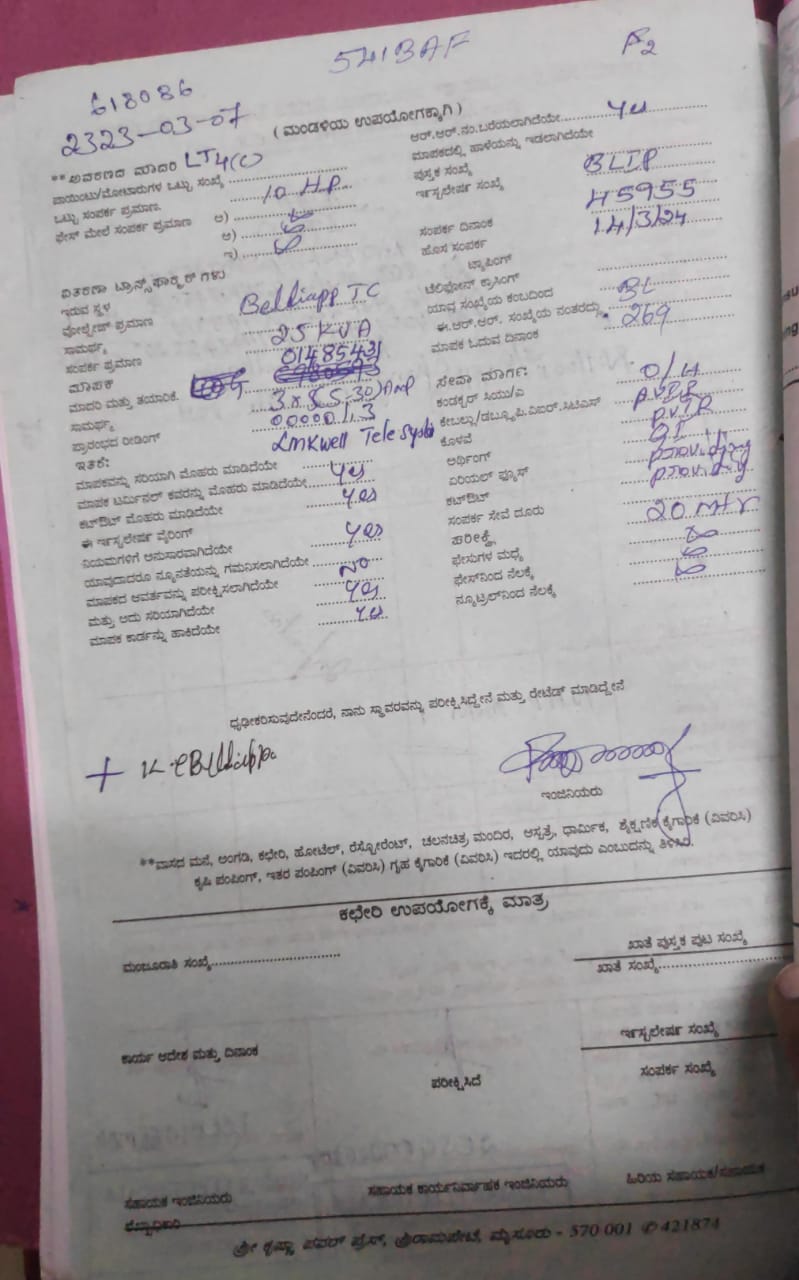 541BAF
F2
618086
2323-03-07
( ಮಂಡಳಿಯ ಉಪಯೋಗಕ್ಕಾಗಿ )
**ಆವರಣದ ಮಾದರಿ LT4(c)
ಪಾಯಿಂಟು/ಮೋಟಾರುಗಳ ಒಟ್ಟು ಸಂಖ್ಯೆ
ಒಟ್ಟು ಸಂಪರ್ಕ ಪ್ರಮಾಣ. 10 HP
ಫೇಸ್ ಮೇಲೆ ಸಂಪರ್ಕ ಪ್ರಮಾಣ ಅ)
ಆ)
ಇ)
ವಿತರಣಾ ಟ್ರಾನ್ಸ್‌ಫಾರ್ಮರ್ ಗಳು
ಇರುವ ಸ್ಥಳ Belliapp TC
ವೋಲ್ಟೇಜ್ ಪ್ರಮಾಣ
ಸಾಮರ್ಥ್ಯ 25 KVA
ಸಂಪರ್ಕ ಪ್ರಮಾಣ 01485431
ಮಾಪಕ
ಮಾದರಿ ಮತ್ತು ತಯಾರಿಕೆ.
ಸಾಮರ್ಥ್ಯ 3x 5-30) Amp
ಪ್ರಾರಂಭದ ರೀಡಿಂಗ್ 00000/13
ಇತರೆ: Linkwell Tele
ಮಾಪಕವನ್ನು ಸರಿಯಾಗಿ ಮೊಹರು ಮಾಡಿದೆಯೇ
ಮಾಪಕ ಟರ್ಮಿನಲ್ ಕವರನ್ನು ಮೊಹರು ಮಾಡಿದೆಯೇ yes
ಕಟ್‌ಔಟ್ ಮೊಹರು ಮಾಡಿದೆಯೇ yes
ಈ ಇನ್ಸ್ಟಲೇಶನ್ ವೈರಿಂಗ್
ನಿಯಮಗಳಿಗೆ ಅನುಸಾರವಾಗಿದೆಯೇ yes
ಯಾವುದಾದರೂ ನ್ಯೂನತೆಯನ್ನು ಗಮನಿಸಲಾಗಿದೆಯೇ No
ಮಾಪಕದ ಆವರ್ತವನ್ನು ಪರೀಕ್ಷಿಸಲಾಗಿದೆಯೇ
ಮತ್ತು ಅದು ಸರಿಯಾಗಿದೆಯೇ yes
ಮಾಪಕ ಕಾರ್ಡನ್ನು ಹಾಕಿದೆಯೇ yes
ಆರ್.ಆರ್.ನಂ.ಬರೆಯಲಾಗಿದೆಯೇ yes
ಮಾಪಕದಲ್ಲಿ ಹಾಳೆಯನ್ನು ಇಡಲಾಗಿದೆಯೇ
ಪುಸ್ತಕ ಸಂಖ್ಯೆ BLIP
ಇನ್ಸ್ಟಲೇಶನ್ ಸಂಖ್ಯೆ 45955
ಸಂಪರ್ಕ ದಿನಾಂಕ 14/3/24
ಹೊಸ ಸಂಪರ್ಕ
ಟ್ಯಾಪಿಂಗ್
ಟೆಲಿಫೋನ್ ಕ್ರಾಸಿಂಗ್
ಯಾವ ಸಂಖ್ಯೆಯ ಕಂಬದಿಂದ BL
ಈ.ಆರ್.ಆರ್. ಸಂಖ್ಯೆಯ ನಂತರದ್ದು 269
ಮಾಪಕ ಓದುವ ದಿನಾಂಕ
ಸೇವಾ ಮಾರ್ಗ:
ಕಂಡಕ್ಟರ್ ಸಿಯು/ಎ O/H
ಕೇಬಲ್ಲು/ಡಬ್ಲ್ಯೂ.ಪಿ.ಐಆರ್.ಸಿಟಿಎಸ್
ಕೊಳವೆ
ಅರ್ಥಿಂಗ್ GI
ಏರಿಯಲ್ ಫ್ಯೂಸ್
ಕಟ್‌ಔಟ್
ಸಂಪರ್ಕ ಸೇವೆ ದೂರು 20 mtr
ಪರೀಕ್ಷೆ
ಫೇಸುಗಳ ಮಧ್ಯೆ
ಫೇಸ್‌ನಿಂದ ನೆಲಕ್ಕೆ
ನ್ಯೂಟ್ರಲ್‌ನಿಂದ ನೆಲಕ್ಕೆ
ಧೃಢೀಕರಿಸುವುದೇನೆಂದರೆ, ನಾನು ಸ್ಥಾವರವನ್ನು ಪರೀಕ್ಷಿಸಿದ್ದೇನೆ ಮತ್ತು ರೇಟೆಡ್ ಮಾಡಿದ್ದೇನೆ
ಇಂಜಿನಿಯರು
**ವಾಸದ ಮನೆ, ಅಂಗಡಿ, ಕಛೇರಿ, ಹೋಟೆಲ್, ರೆಸ್ಟೋರೆಂಟ್, ಚಲನಚಿತ್ರ ಮಂದಿರ, ಆಸ್ಪತ್ರೆ, ಧಾರ್ಮಿಕ, ಶೈಕ್ಷಣಿಕ ಕೈಗಾರಿಕೆ (ವಿವರಿಸಿ)
ಕೃಷಿ ಪಂಪಿಂಗ್, ಇತರ ಪಂಪಿಂಗ್ (ವಿವರಿಸಿ) ಗೃಹ ಕೈಗಾರಿಕೆ (ವಿವರಿಸಿ) ಇದರಲ್ಲಿ ಯಾವುದು ಎಂಬುದನ್ನು ತಿಳಿಸಿರಿ.
ಕಛೇರಿ ಉಪಯೋಗಕ್ಕೆ ಮಾತ್ರ
ಮಂಜೂರಾತಿ ಸಂಖ್ಯೆ
ಖಾತೆ ಪುಸ್ತಕ ಪುಟ ಸಂಖ್ಯೆ
ಖಾತೆ ಸಂಖ್ಯೆ
ಕಾರ್ಯ ಆದೇಶ ಮತ್ತು ದಿನಾಂಕ
ಪರೀಕ್ಷಿಸಿದೆ
ಇನ್ಸ್ಟಲೇಶನ್ ಸಂಖ್ಯೆ
ಸಂಪರ್ಕ ಸಂಖ್ಯೆ
ಸಹಾಯಕ ಇಂಜಿನಿಯರು
ಸಹಾಯಕ ಕಾರ್ಯನಿರ್ವಾಹಕ ಇಂಜಿನಿಯರು
ಹಿರಿಯ ಸಹಾಯಕ/ಸಹಾಯಕ
ಶ್ರೀ ಕೃಷ್ಣಾ ಪವರ್ ಪ್ರೆಸ್, ಶ್ರೀರಾಮಪೇಟೆ, ಮೈಸೂರು - 570 001 ✆ 421874